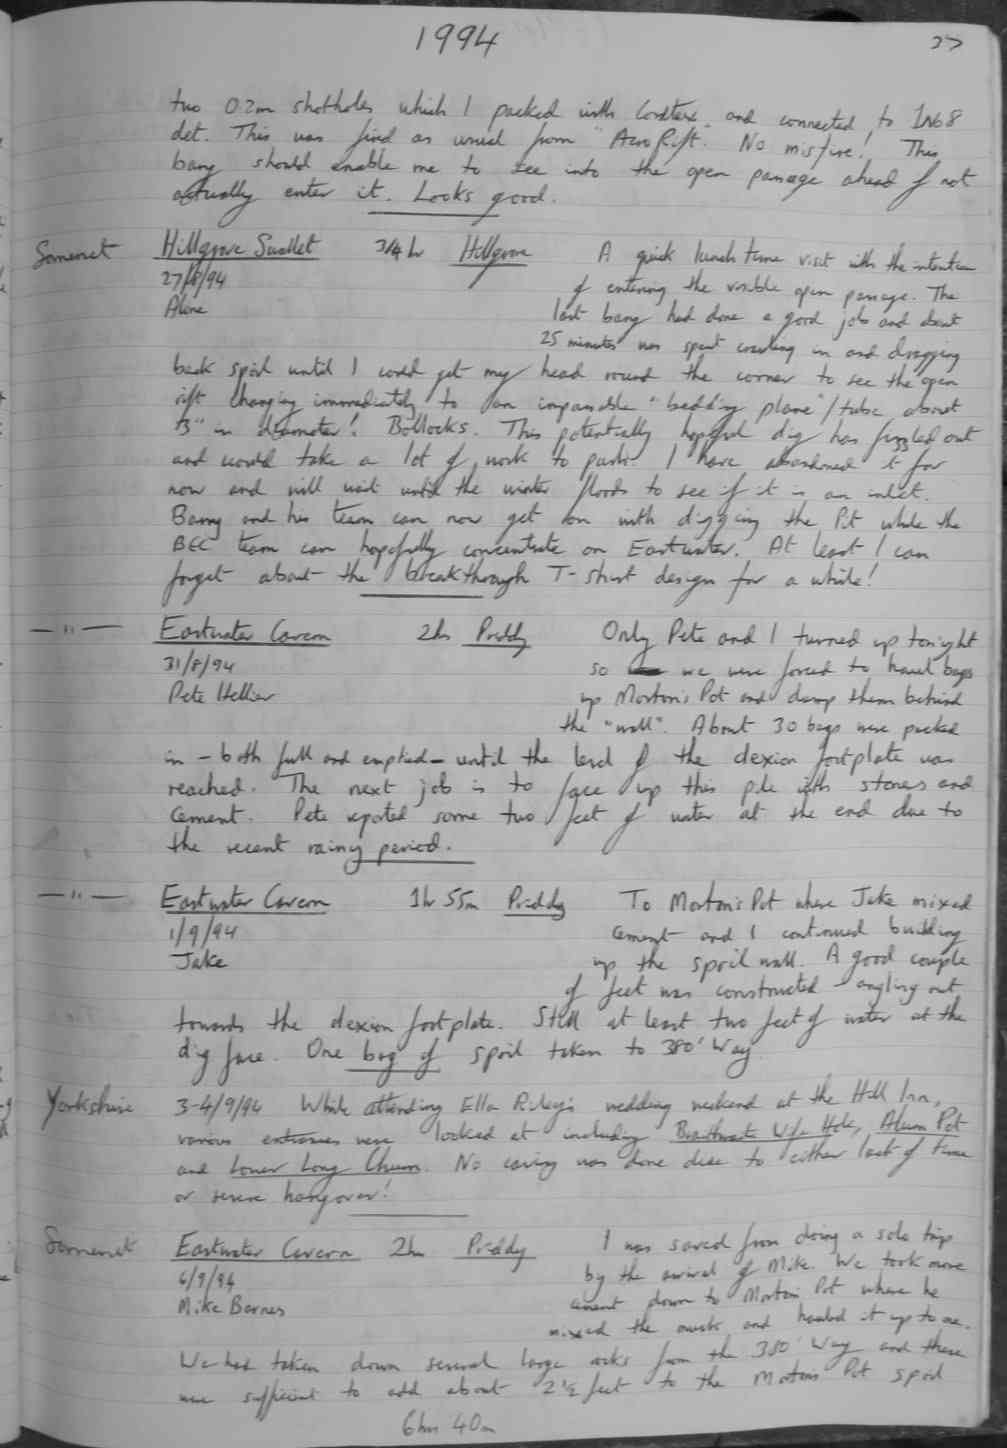 1994
27
two 0.2m shotholes which I packed with Cordtex and connected to IN68
det. This was fired as usual from "Aero Rift". No misfire! This
bang should enable me to see into the open passage ahead if not
actually enter it. Looks good.
Somerset Hillgrove Swallet 3/4 hr Hillgrove A quick lunch time visit with the intention
27/8/94 of entering the visible open passage. The
Alone last bang had done a good job and about
25 minutes was spent crawling in and dragging
back spoil until I could get my head round the corner to see the open
rift changing immediately to an impassable "bedding plane"/tube about
3" in diameter! Bollocks. This potentially hopeful dig has fizzled out
and would take a lot of work to push. I have abandoned it for
now and will wait until the winter floods to see if it is an inlet.
Barry and his team can now get on with digging the Pit while the
BEC team can hopefully concentrate on Eastwater. At least I can
forget about the breakthrough T-shirt design for a while!
—"— Eastwater Cavern 2hr Priddy Only Pete and I turned up tonight
31/8/94 so we were forced to haul bags
Pete Hellier up Morton's Pot and dump them behind
the "wall". About 30 bags were packed
in - both full and emptied - until the level of the dexion footplate was
reached. The next job is to face up this pile with stones and
cement. Pete reported some two feet of water at the end due to
the recent rainy period.
—"— Eastwater Cavern 1hr 55m Priddy To Morton's Pot where Jake mixed
1/9/94 cement and I continued building
Jake up the spoil wall. A good couple
of feet was constructed - angling out
towards the dexion footplate. Still at least two feet of water at the
dig face. One bag of spoil taken to 380' Way
Yorkshire 3-4/9/94 While attending Ella Riley's wedding weekend at the Hill Inn,
various entrances were looked at including Braithwaite Wife Hole, Alum Pot
and Lower Long Churn. No caving was done due to either lack of time
or severe hangover!
Somerset Eastwater Cavern 2hr Priddy I was saved from doing a solo trip
6/9/94 by the arrival of Mike. We took more
Mike Barnes cement down to Mortons Pot where he
mixed the muck and hauled it up to me.
We had taken down several large rocks from the 380' Way and these
were sufficient to add about 2½ feet to the Mortons Pot spoil
6hrs 40m